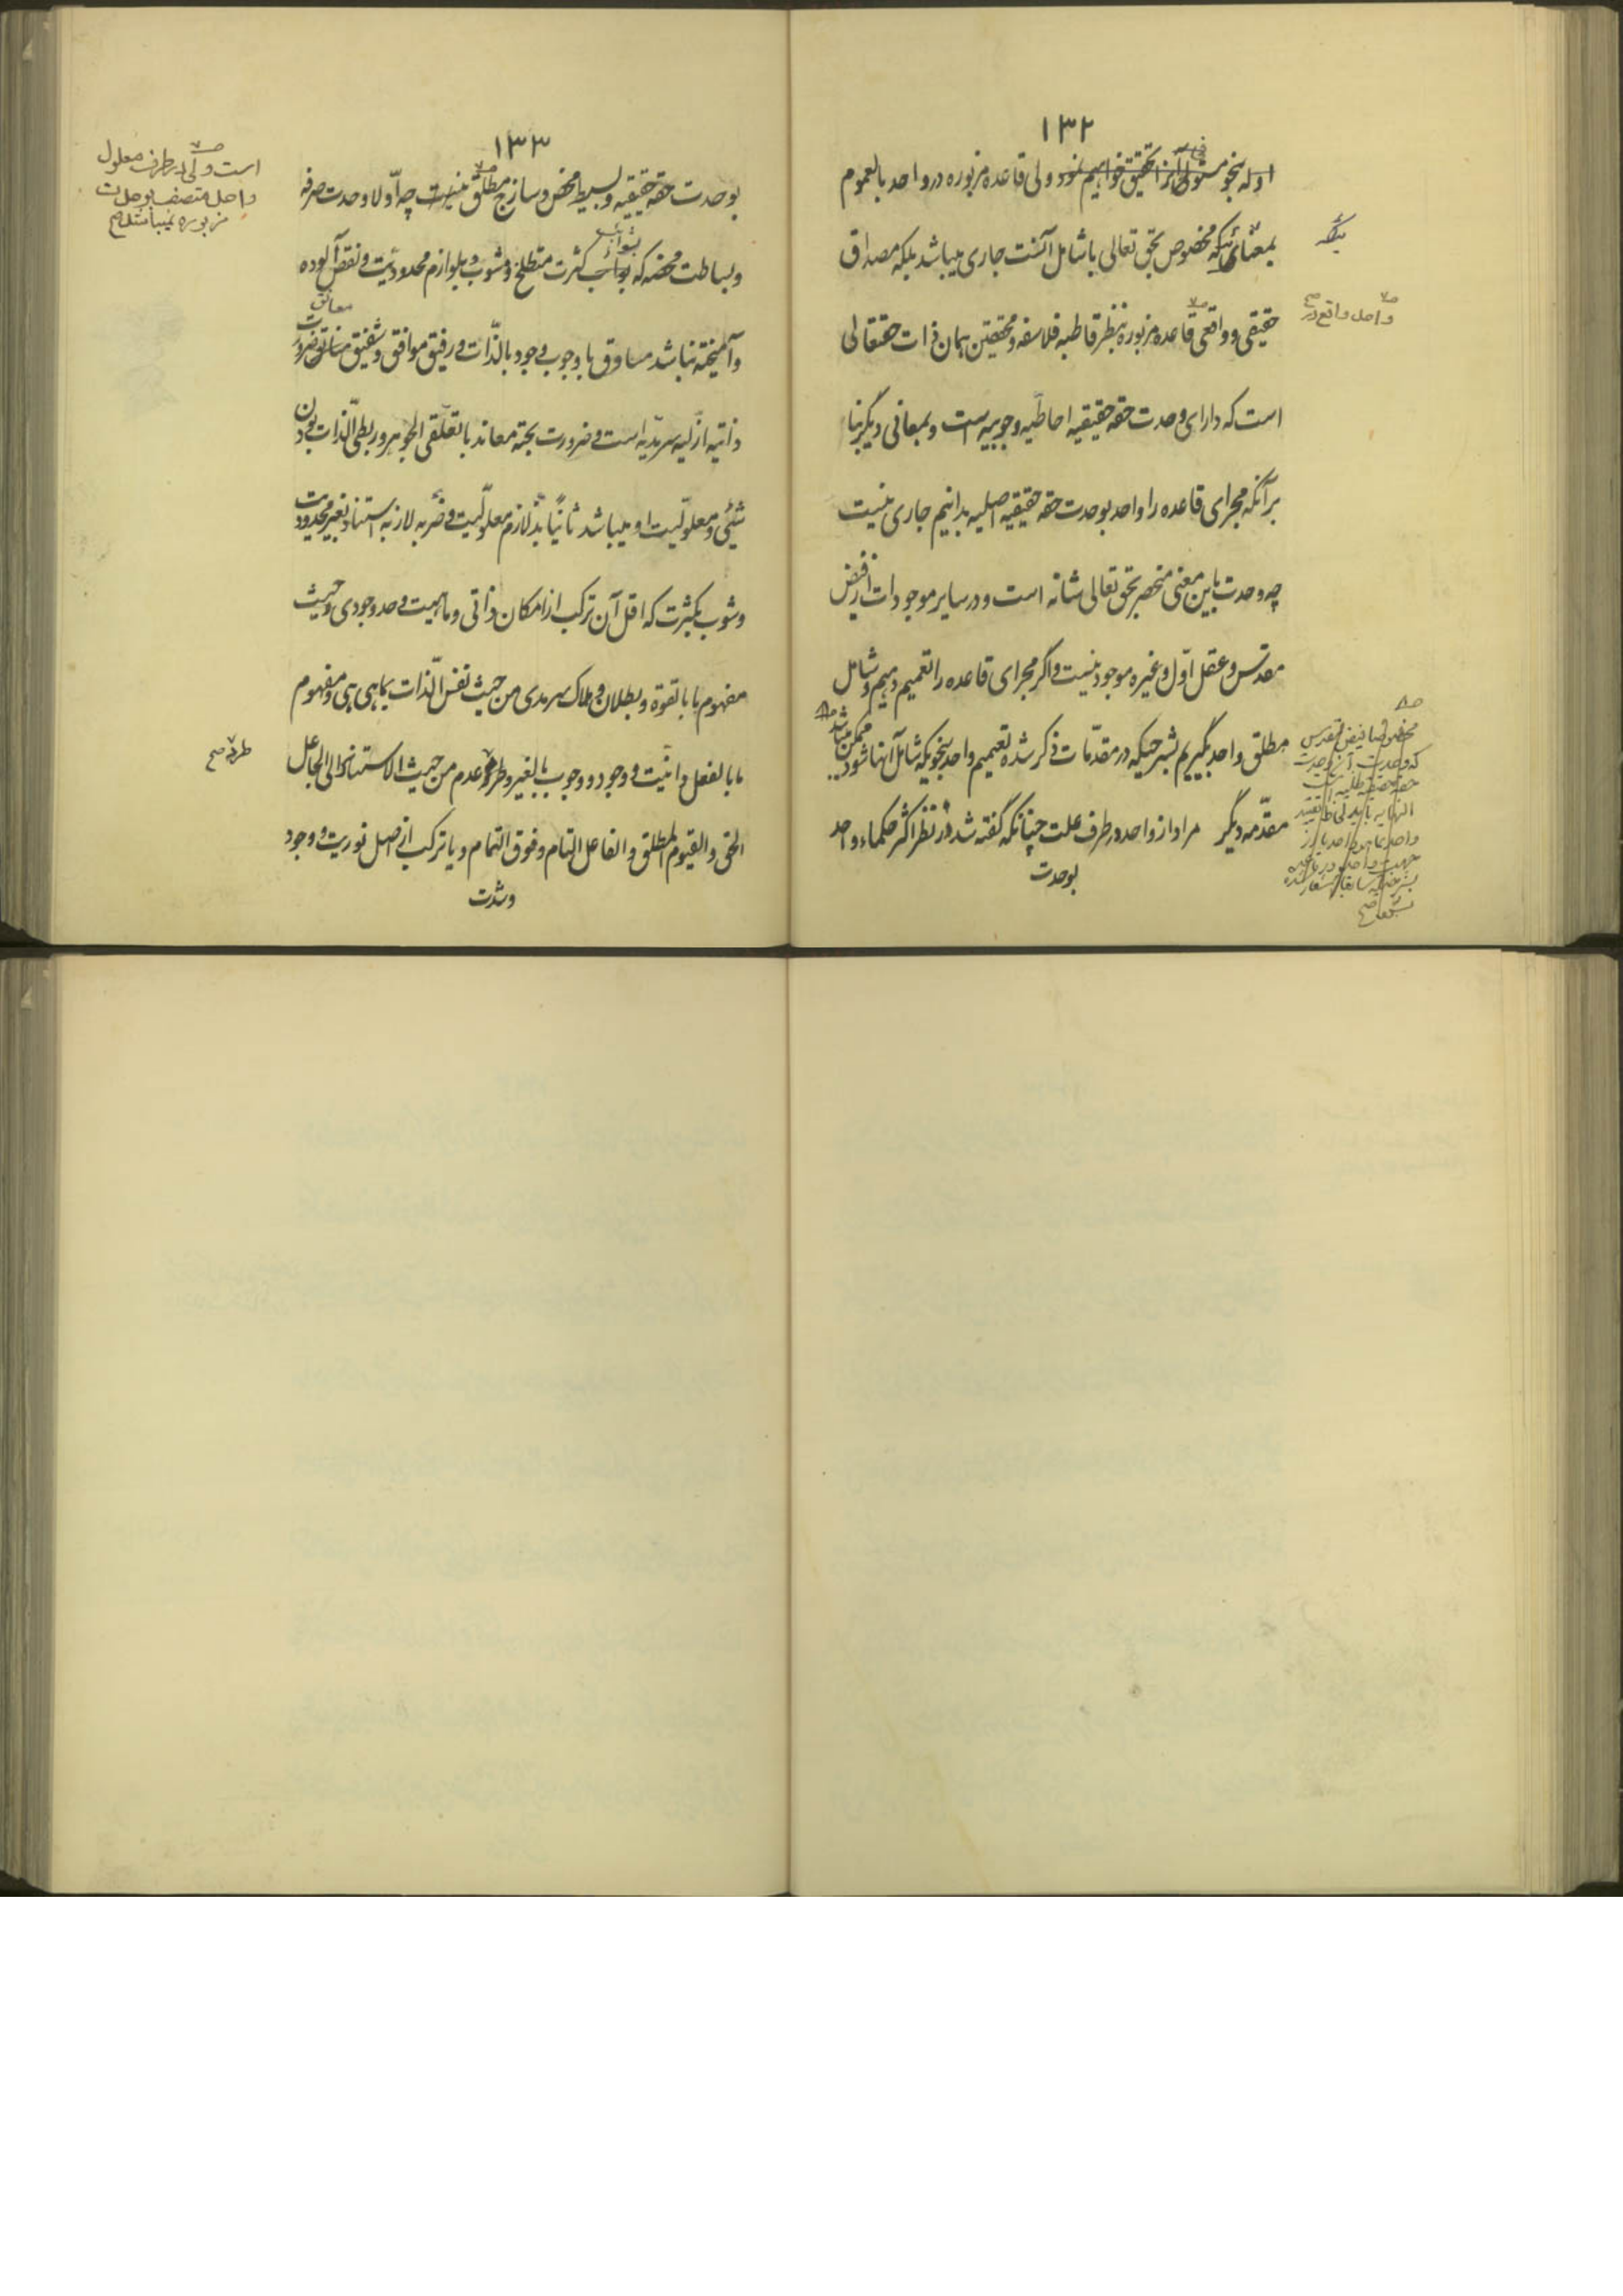 ۱۳۲
ادله بنحو مستوفی آنرا تحقیق خواهیم نمود ولی قاعده مزبوره در واحد بالعموم
بمعنائیکه مخصوص بحق تعالی یا شامل آنست جاری میباشد بلکه مصداق
حقیقی و واقعی قاعده مزبوره بنظر قاطبه فلاسفه و محققین همان ذات حقتعالی
است که دارای وحدت حقه حقیقیه احاطیه وجوبیه است و بمعانی دیگر بنا
بر آنکه مجرای قاعده را واحد بوحدت حقه حقیقیه اصلیه بدانیم جاری نیست
چه وحدت باین معنی منحصر بحق تعالی شانه است و در سایر موجودات از فیض
مقدس و عقل اول و غیره موجود نیست و اگر مجرای قاعده را تعمیم دهیم و شامل
مطلق واحد بگیریم بشرحیکه در مقدمات ذکر شده تعمیم واحد بنحویکه شامل آنها شود ممکن میباشد
مقدمه دیگر مراد از واحد در طرف علت چنانکه گفته شد در نظر اکثر حکماء واحد
بوحدت
واحد واقع در صح
۱۳۳
بوحدت حقه حقیقیه و بسیط محض و ساذج مطلق نیست چه اولا وحدت صرفه
و بساطت محضه که بشوائب کثرت متطلخ و مشوب و بلوازم محدودیت و نقص آلوده
و آمیخته نباشد مساوق با وجوب وجود بالذات و رفیق موافق و شفیق معانق ضرورت
ذاتیه ازلیه سرمدیه است و ضرورت بحته معاند با تعلقی الجوهر و ربطی الذات بودن
شیئی و معلولیت او میباشد ثانیا بذ لازم معلولیت و ضربه لازبه استناد بغیر محدودیت
و شوب بکثرت که اقل آن ترکب از امکان ذاتی و ماهیت و حد وجودی و حیث
مفهوم ما بالقوة و بطلان و هلاک سرمدی من حیث نفس الذات بما هی هی و مفهوم
ما بالفعل و انیت و وجود و وجوب بالغیر و طرد عدم من حیث الاستناد الی الجاعل
الحق و القیوم المطلق و الفاعل التام و فوق التمام و یا ترکب از اصل نوریت و وجود
وشدت
است ولی در طرف معلول
واحد متصف بوحدت
مزبوره نمیباشد صح
طرد صح